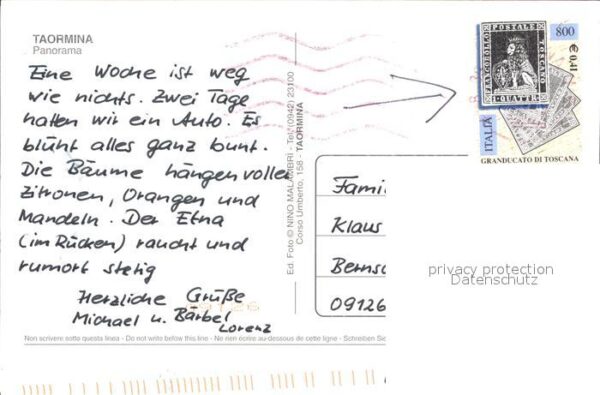 TAORMINA
Panorama
Eine Woche ist weg
wie nichts. Zwei Tage
hatten wir ein Auto. Es
blüht alles ganz bunt.
Die Bäume hängen voller
Zitronen, Orangen und
Mandeln. Der Etna
(im Rücken) raucht und
rumort stetig
Herzliche Grüße
Michael u. Bärbel
Lorenz
Non scrivere sotto questa linea - Do not write below this line - Ne rien ecrire au-dessous de cette ligne - Schreiben Sie
Ed. Foto © NINO MALAMBRI - Tel. (0942) 23100
Corso Umberto, 158 - TAORMINA
800
€ 0,41
FRANCOBOLLO
POSTALE
TOSCANO
1 QUATTR.
ITALIA
GRANDUCATO DI TOSCANA
Famil
Klaus
Bernsd
09126
privacy protection
Datenschutz